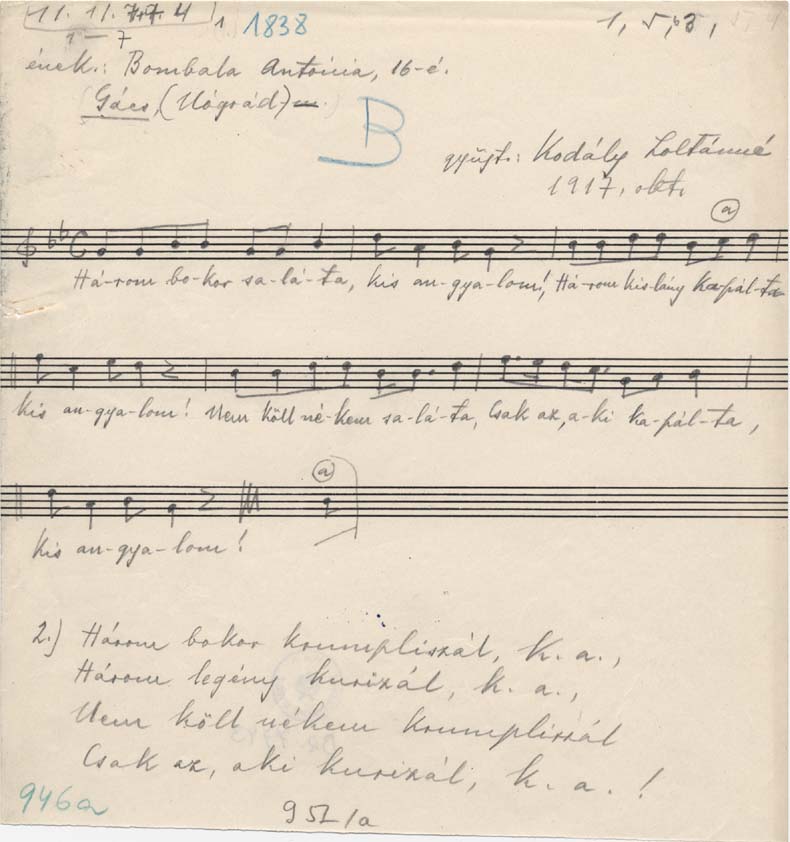 11. 11. 7+7. 4 1. 1838 1, 5, b3,
1 — 7
ének.: Bombala Antónia, 16-é.
Gács, (Nógrád)
B
gyüjt.: Kodály Zoltánné
1917. okt.
a
Há-rom bo-kor sa-lá-ta, kis an-gya-lom! Há-rom kis-lány ka-pál-ta
kis an-gya-lom! Nem költ né-kem sa-lá-ta, Csak az, a-ki ka-pál-ta,
a
kis an-gya-lom!
2.) Három bokor krumpliszál, k. a.,
Három legény kurizál, k. a.,
Nem költ nékem krumpliszál
Csak az, aki kurizál, k. a. !
946a
952/a